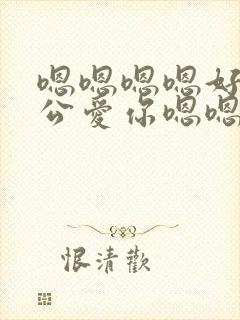 嗯嗯嗯嗯好
公爱你嗯嗯
恨清歡